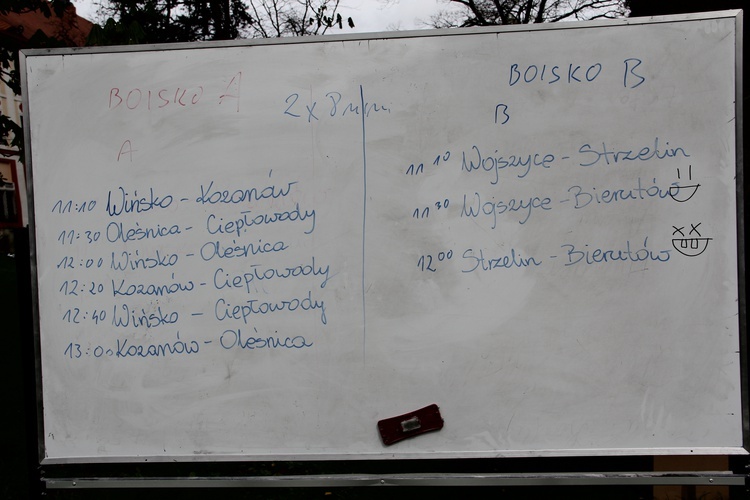 BOISKO A
2 x 8 min
A
11:10 Wińsko - Kozanów
11:30 Oleśnica - Ciepłowody
12:00 Wińsko - Oleśnica
12:20 Kozanów - Ciepłowody
12:40 Wińsko - Ciepłowody
13:00 Kozanów - Oleśnica
BOISKO B
B
11 10 Wojszyce - Strzelin
11 30 Wojszyce - Bierutów
12 00 Strzelin - Bierutów